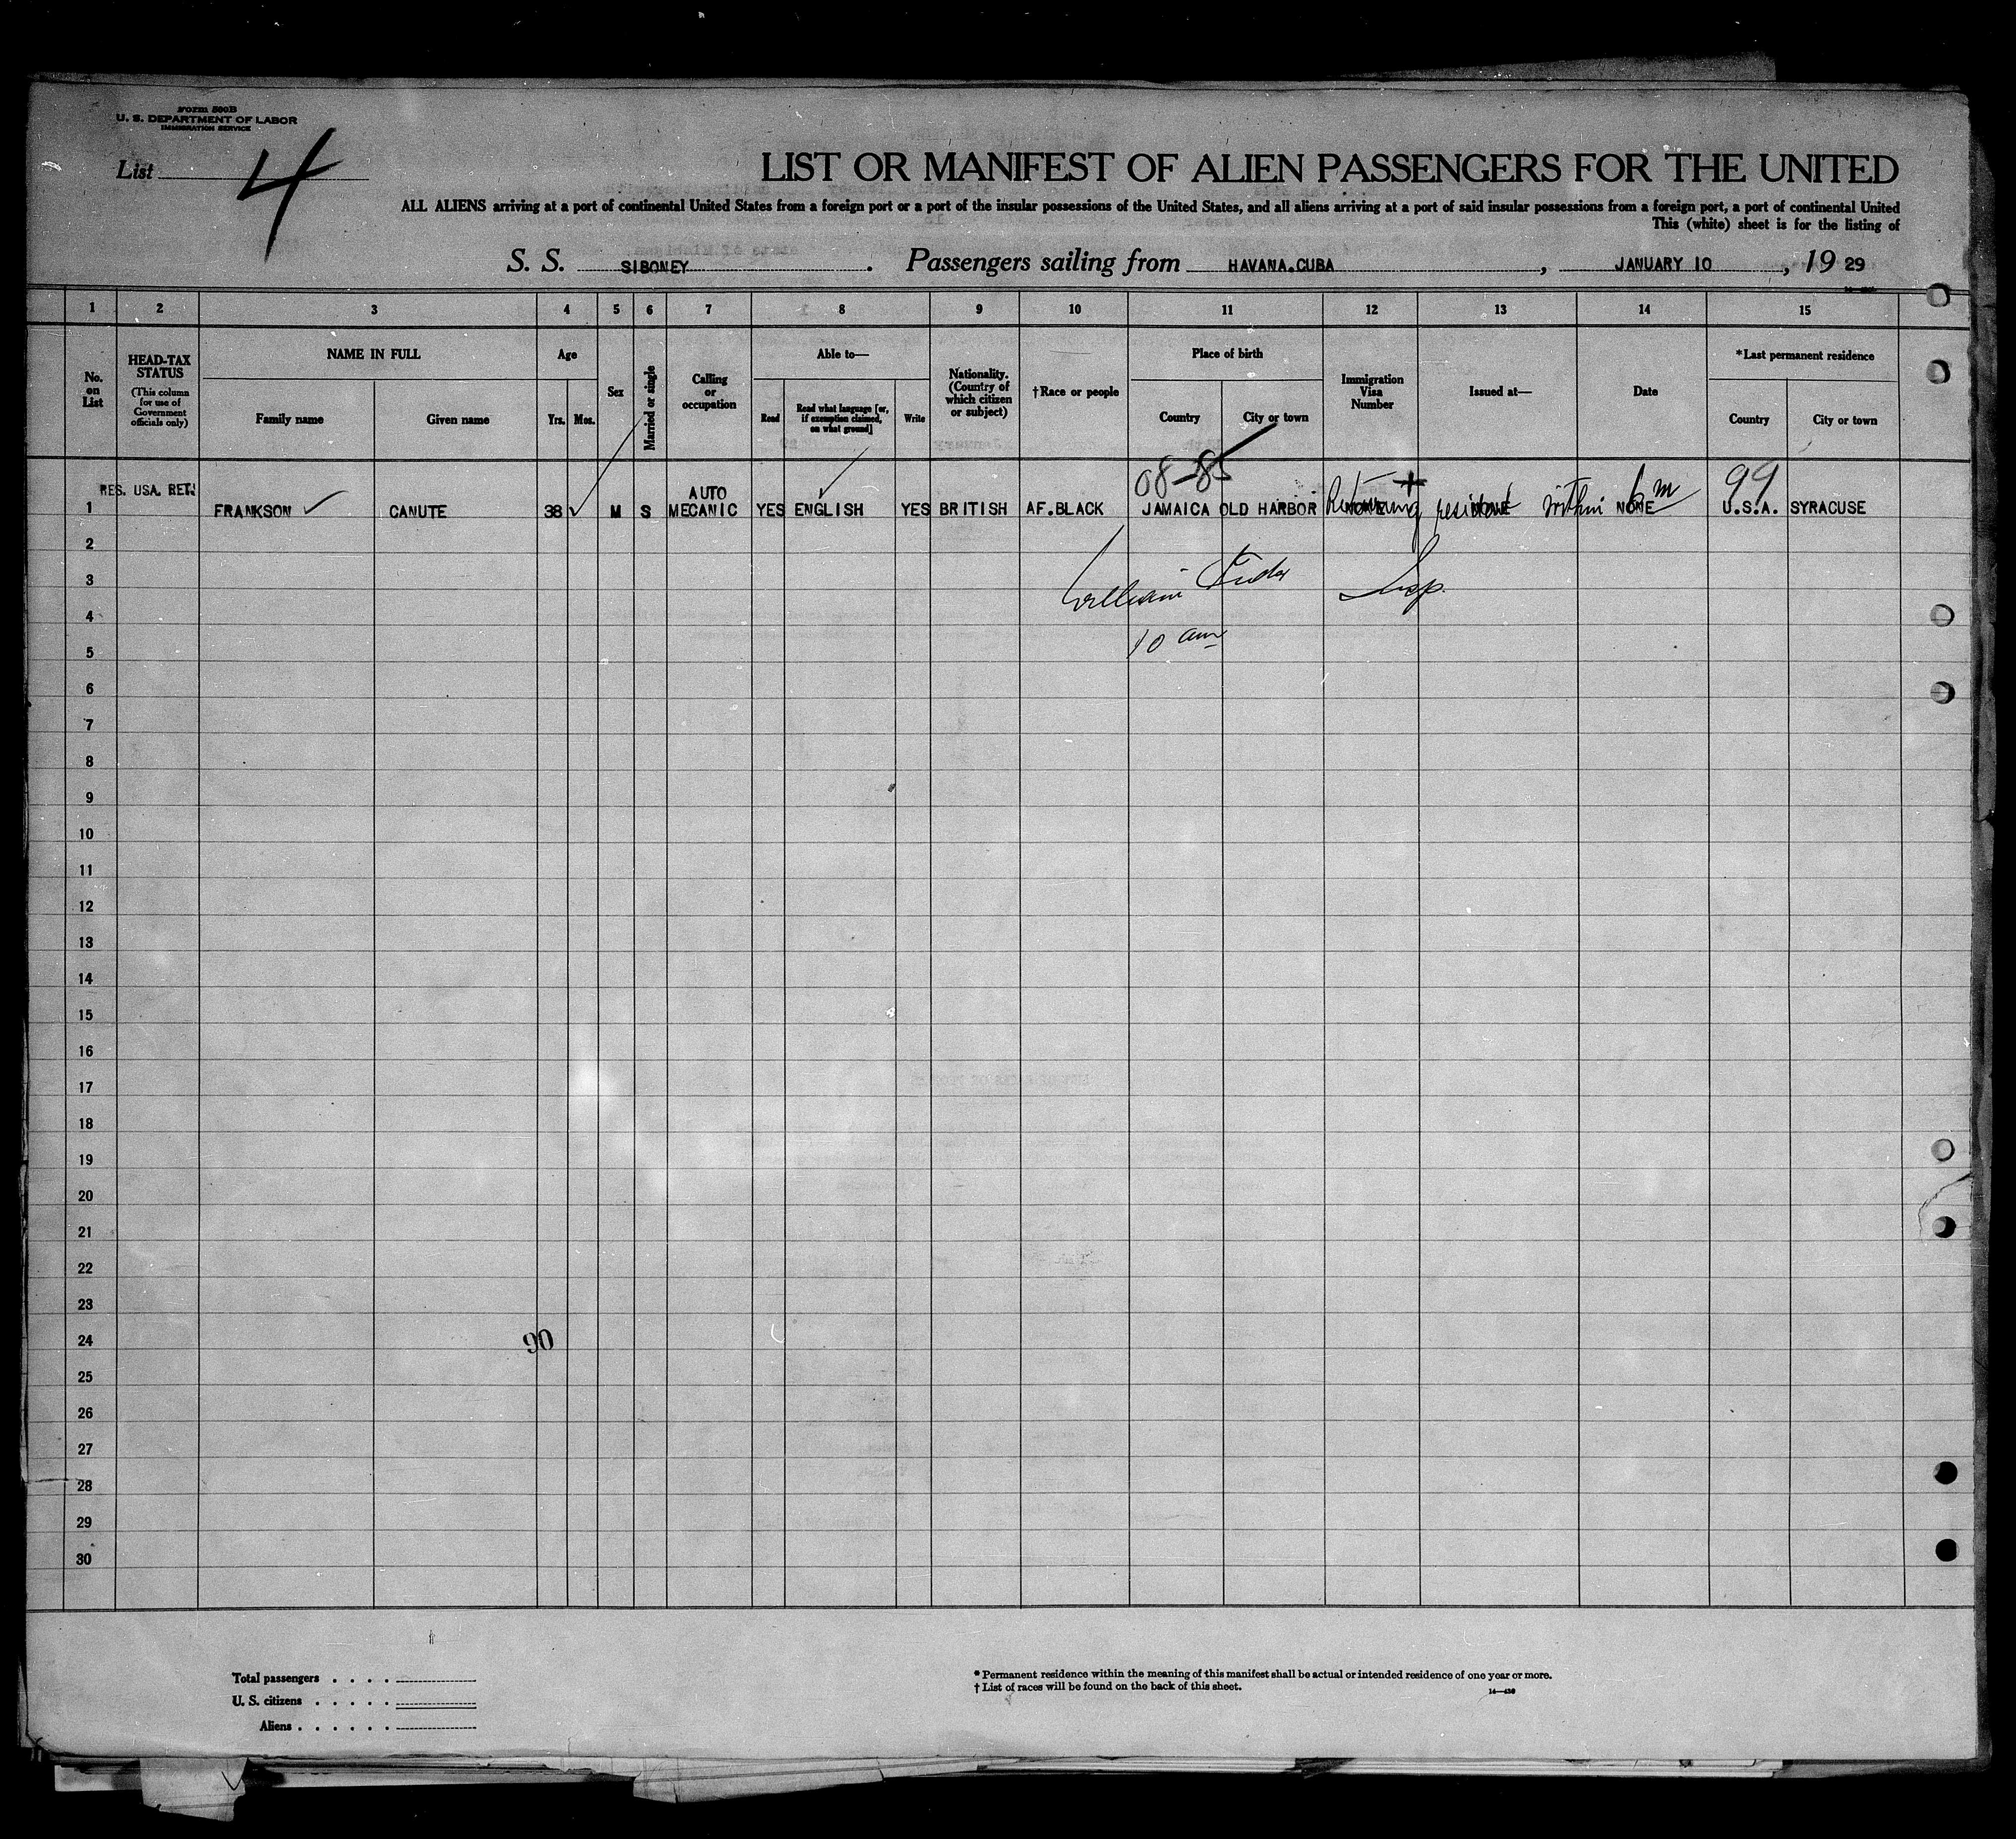 Form 500B
U. S. DEPARTMENT OF LABOR
IMMIGRATION SERVICE
List 4
LIST OR MANIFEST OF ALIEN PASSENGERS FOR THE UNITED
ALL ALIENS arriving at a port of continental United States from a foreign port or a port of the insular possessions of the United States, and all aliens arriving at a port of said insular possessions from a foreign port, a port of continental United
This (white) sheet is for the listing of
S. S. SIBONEY. Passengers sailing from HAVANA.CUBA, JANUARY 10, 19 29
1 2 3 4 5 6 7 8 9 10 11 12 13 14 15
No. on List
HEAD-TAX STATUS
(This column for use of Government officials only)
NAME IN FULL
Family name Given name
Age
Yrs. Mos.
Sex
Married or single
Calling or occupation
Able to—
Read
Read what language [or, if exemption claimed, on what ground]
Write
Nationality. (Country of which citizen or subject)
†Race or people
Place of birth
Country City or town
Immigration Visa Number
Issued at—
Date
*Last permanent residence
Country City or town
08-85 99
RES. USA. RET.
1 FRANKSON CANUTE 38 M S AUTO MECANIC YES ENGLISH YES BRITISH AF.BLACK JAMAICA OLD HARBOR NONE NONE NONE U.S.A. SYRACUSE
Returning resident within 6 m
2
William Insp.
3
4
10 am
5
6
7
8
9
10
11
12
13
14
15
16
17
18
19
20
21
22
23
24
90
25
26
27
28
29
30
Total passengers . . . .
U. S. citizens . . . . .
Aliens . . . . . .
* Permanent residence within the meaning of this manifest shall be actual or intended residence of one year or more.
† List of races will be found on the back of this sheet.
14—430